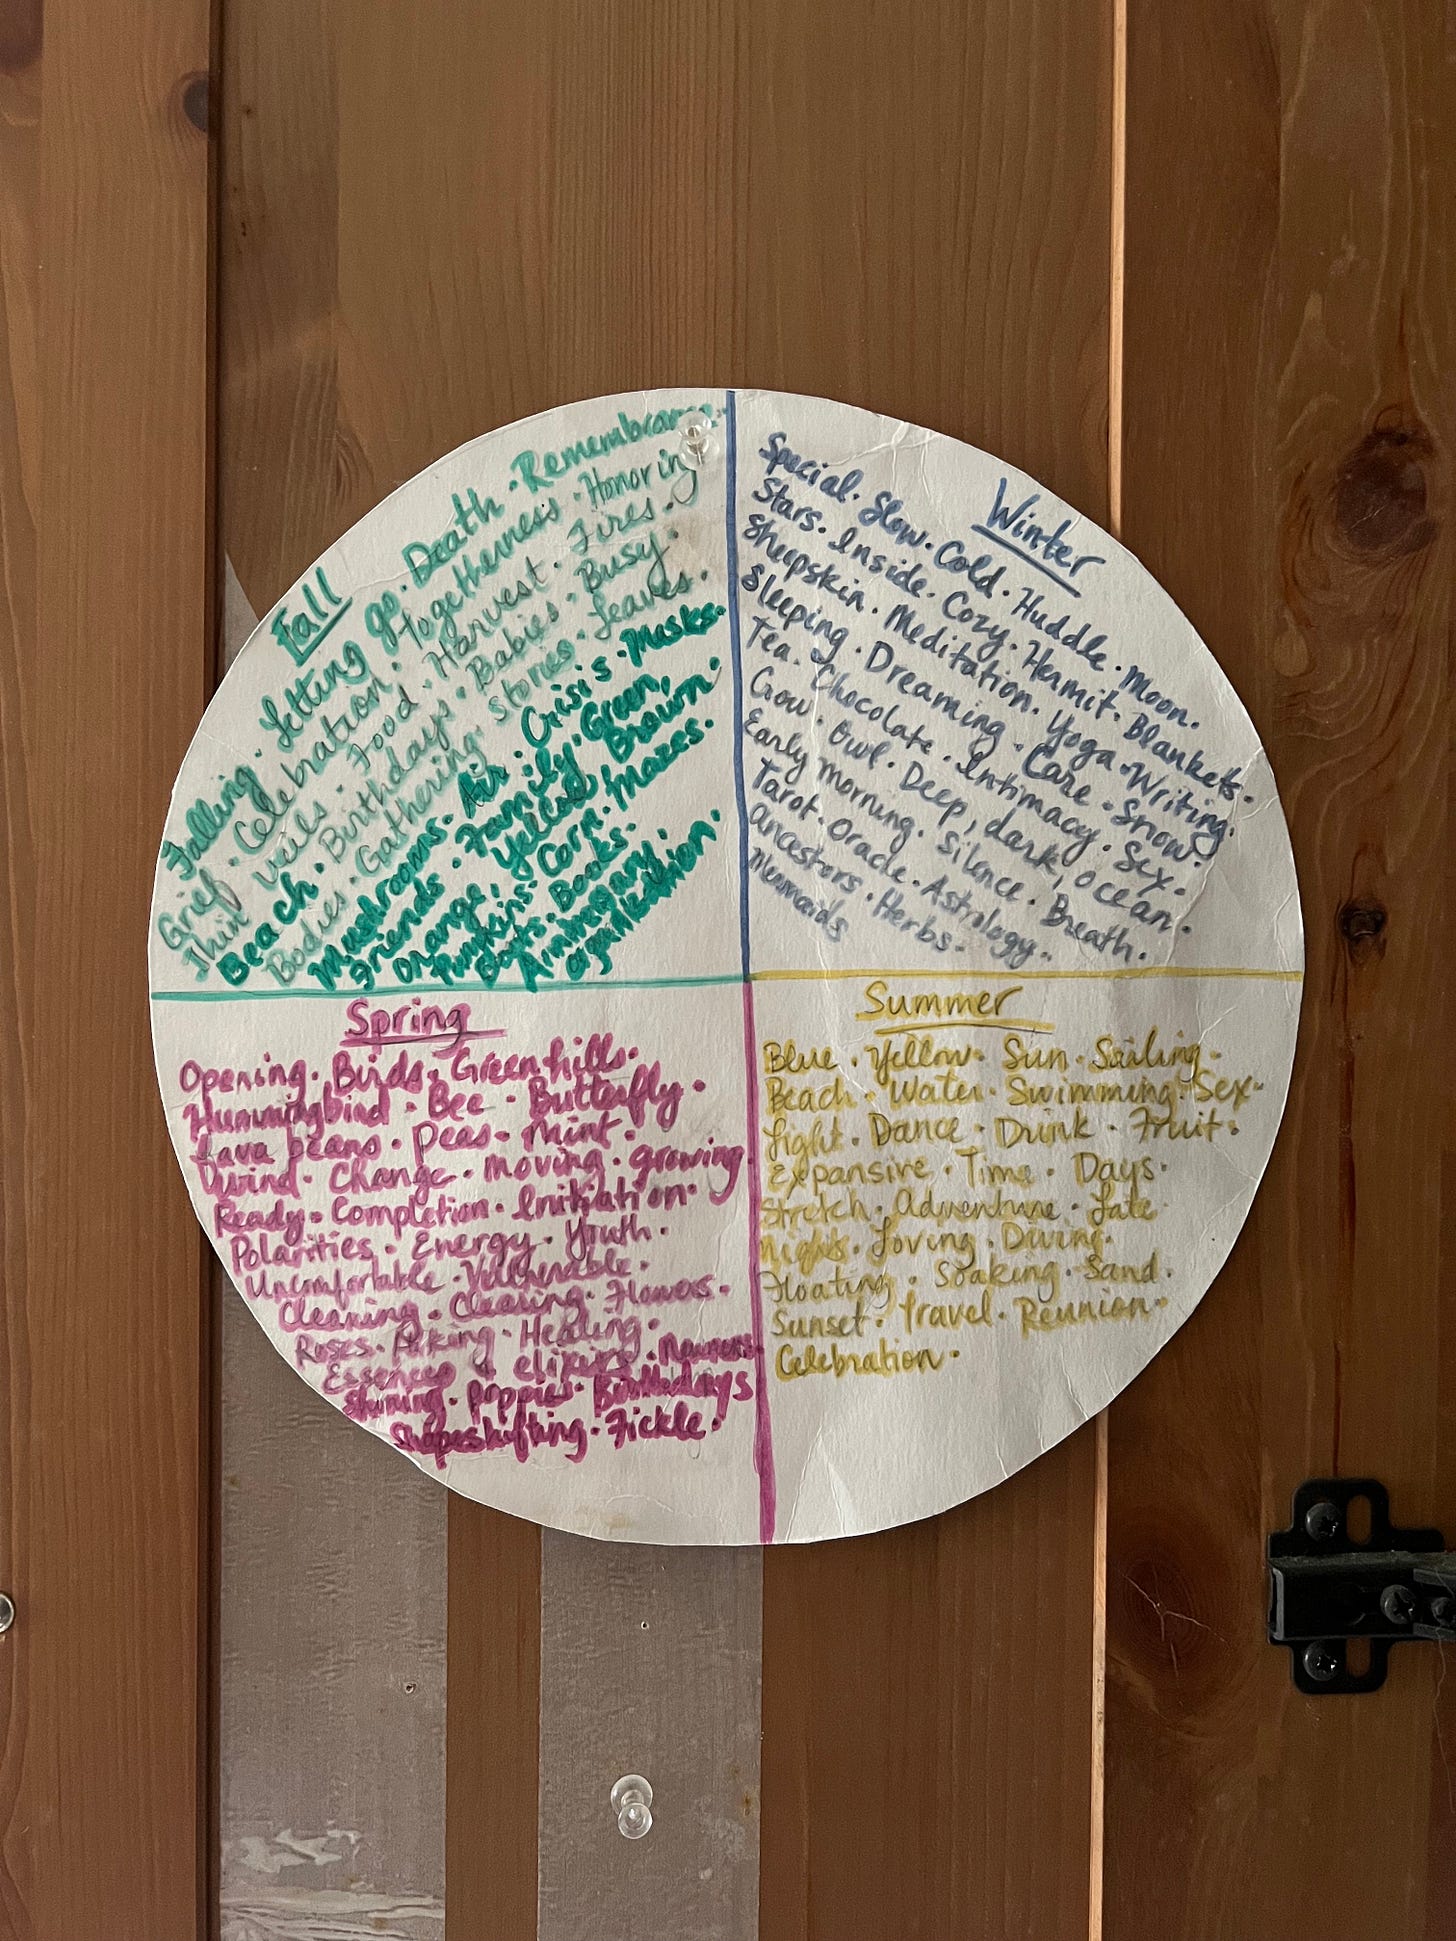 Fall
Falling. Letting go. Death. Remembrance.
Grief. Celebration. Togetherness. Honoring
Thin veils. Food. Harvest. Fires.
Beach. Birthdays. Babies. Busy.
Bodies. Gathering. Stories. Leaves.
Mushrooms. Air. Crisis. Masks.
Friends. Family. Green,
Orange, Yellow, Brown.
Pumpkins. Corn. Mazes.
Boots. Books.
Aimmegany.
Organization.
Winter
Special. Slow. Cold. Huddle. Moon.
Stars. Inside. Cozy. Hermit. Blankets.
Sheepskin. Meditation. Yoga. Writing.
Sleeping. Dreaming. Care. Snow.
Tea. Chocolate. Intimacy. Sex.
Crow. Owl. Deep, dark, ocean.
Early morning. Silence. Breath.
Tarot. Oracle. Astrology.
Ancestors. Herbs.
Mermaids
Spring
Opening. Birds. Green hills.
Hummingbird. Bee. Butterfly.
Fava beans. Peas. Mint.
Wind. Change. Moving. growing.
Ready. Completion. Initiation.
Polarities. Energy. Youth.
Uncomfortable. Vulnerable.
Cleaning. Clearing. Flowers.
Roses. Healing.
Essences & elixirs. Newness.
Shining. Poppies. Birthdays
Shapeshifting. Fickle.
Summer
Blue. Yellow. Sun. Sailing.
Beach. Water. Swimming. Sex.
Light. Dance. Drink. Fruit.
Expansive. Time. Days.
Stretch. Adventure. Late
Nights. Loving. Diving.
Floating. Soaking. Sand.
Sunset. Travel. Reunion.
Celebration.